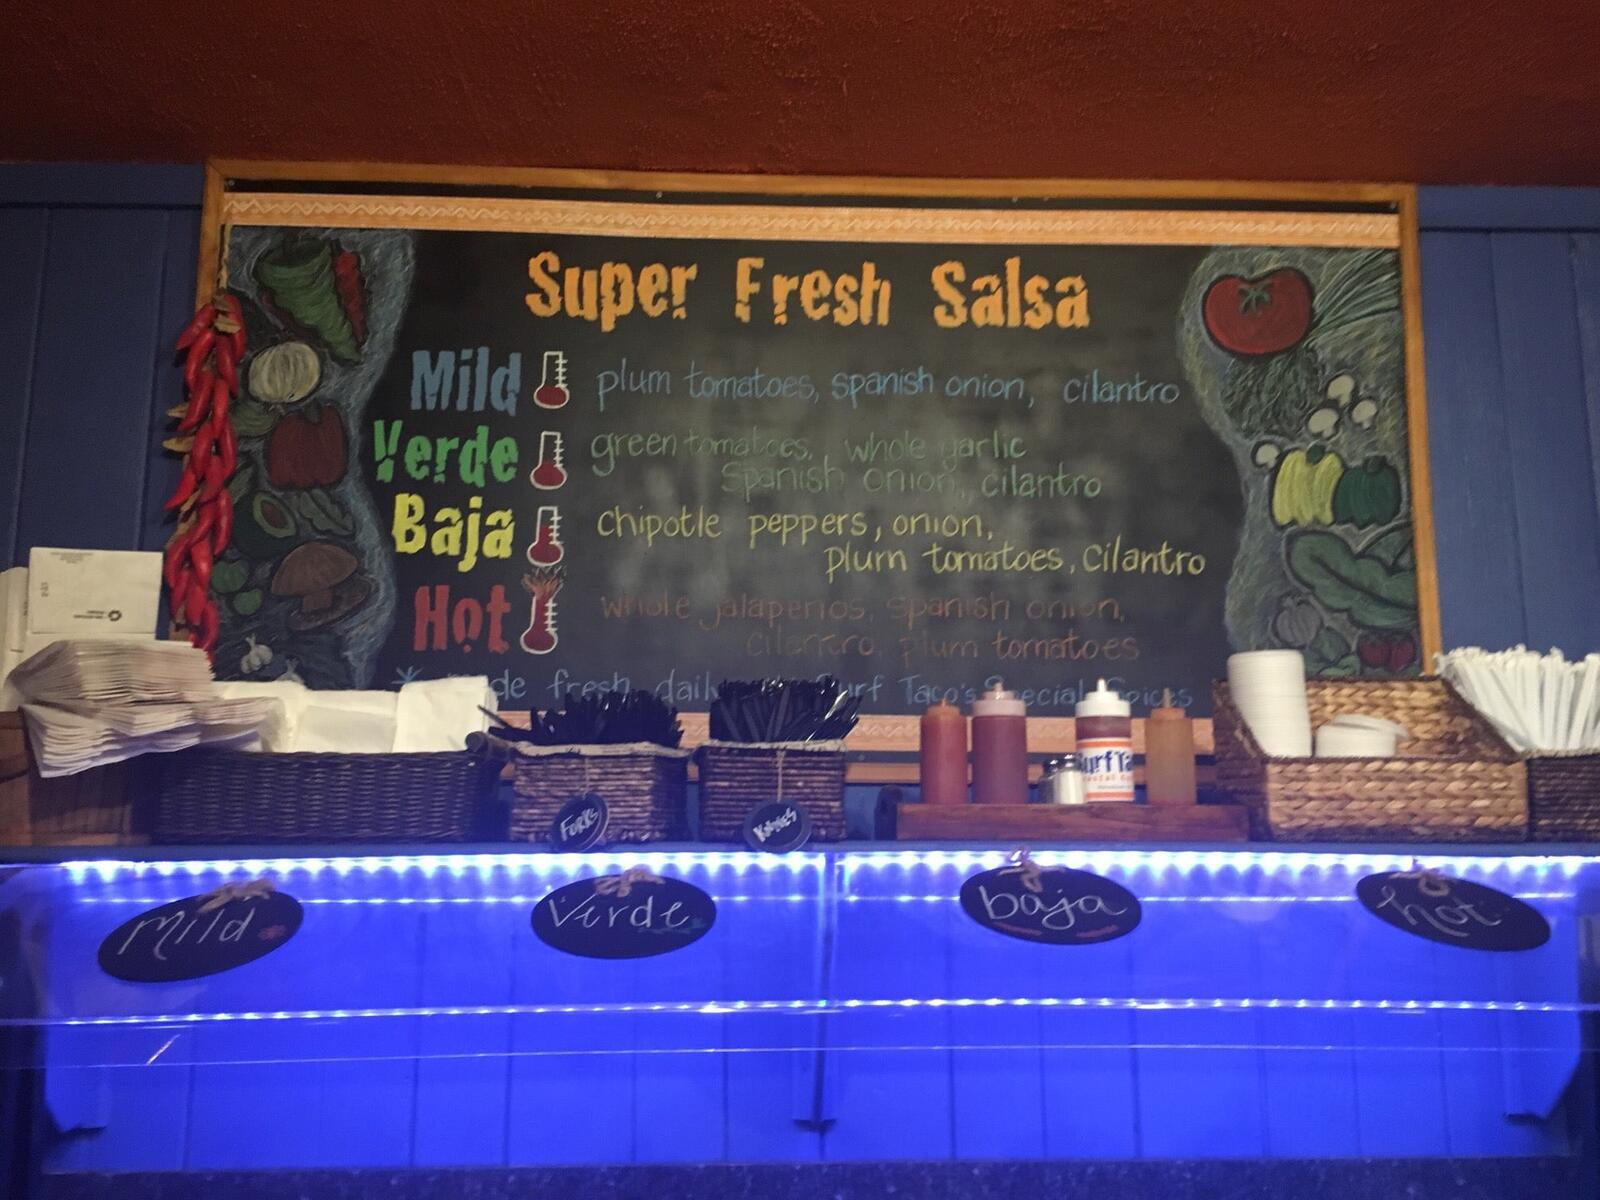 Super Fresh Salsa
Mild plum tomatoes, spanish onion, cilantro
Verde green tomatoes, whole garlic
Spanish onion, cilantro
Baja chipotle peppers, onion,
plum tomatoes, cilantro
Hot whole jalapenos, spanish onion,
cilantro, plum tomatoes
fresh daily Surf Taco's Special Spices
Forks
Knives
Mild
Verde
baja
hot